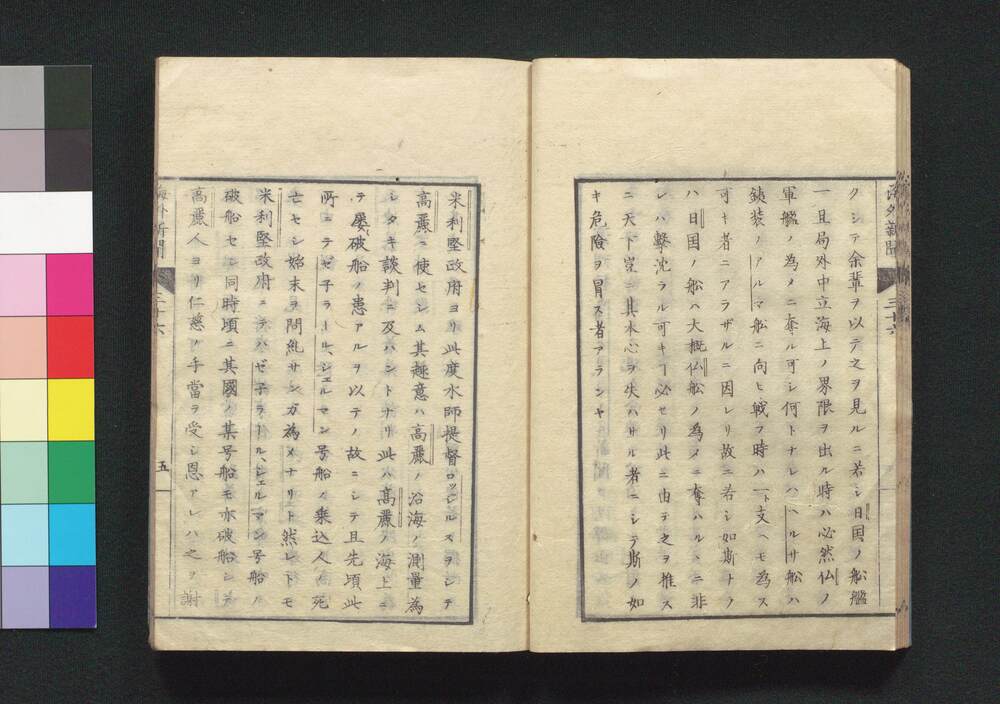 クシテ余輩ヲ以テ之ヲ見ルニ若シ日国ノ船艦
一旦局外中立海上ノ界限ヲ出ル時ハ必然仏ノ
軍艦ノ為メニ奪ル可シ何トナレハヘルサ船ハ
鉄装ノアルマ船ニ向ヒ戦フ時ハ一ト支ヘモ為ス
可キ者ニアラザルニ因レリ故ニ若シ如斯トナラ
ハ日国ノ船ハ大概仏船ノ為メニ奪ハルヽニ非
レハ撃沈ラル可キヿ必セリ此ニ由テ之ヲ推ス
ニ天下豈ニ其本心ヲ失ハサル者ニシテ斯ノ如
キ危険ヲ冒ス者アランヤ
海外新聞
三十六
米利堅政府ヨリ此度水師提督ロッジルスヲシテ
高麗ニ使セシム其趣意ハ高麗ノ沿海ノ測量為
シタキ談判ニ及ハントナリ此ハ高麗ノ海上ニ
テ屡破船ノ患アルヲ以テノ故ニシテ且先頃此
所ニテゼ子ラール、シェルマン号船ノ乗込人ノ死
亡セシ始末ヲ問糺サンガ為メナリト然レトモ
米利堅政府ニテハゼ子ラール、シェルマン号船ノ
破船セシ同時頃ニ其國ノ某号船モ亦破船シテ
高麗人ヨリ仁慈ノ手當ヲ受シ恩アレハ之ヲ謝
海外新聞
三十六
五